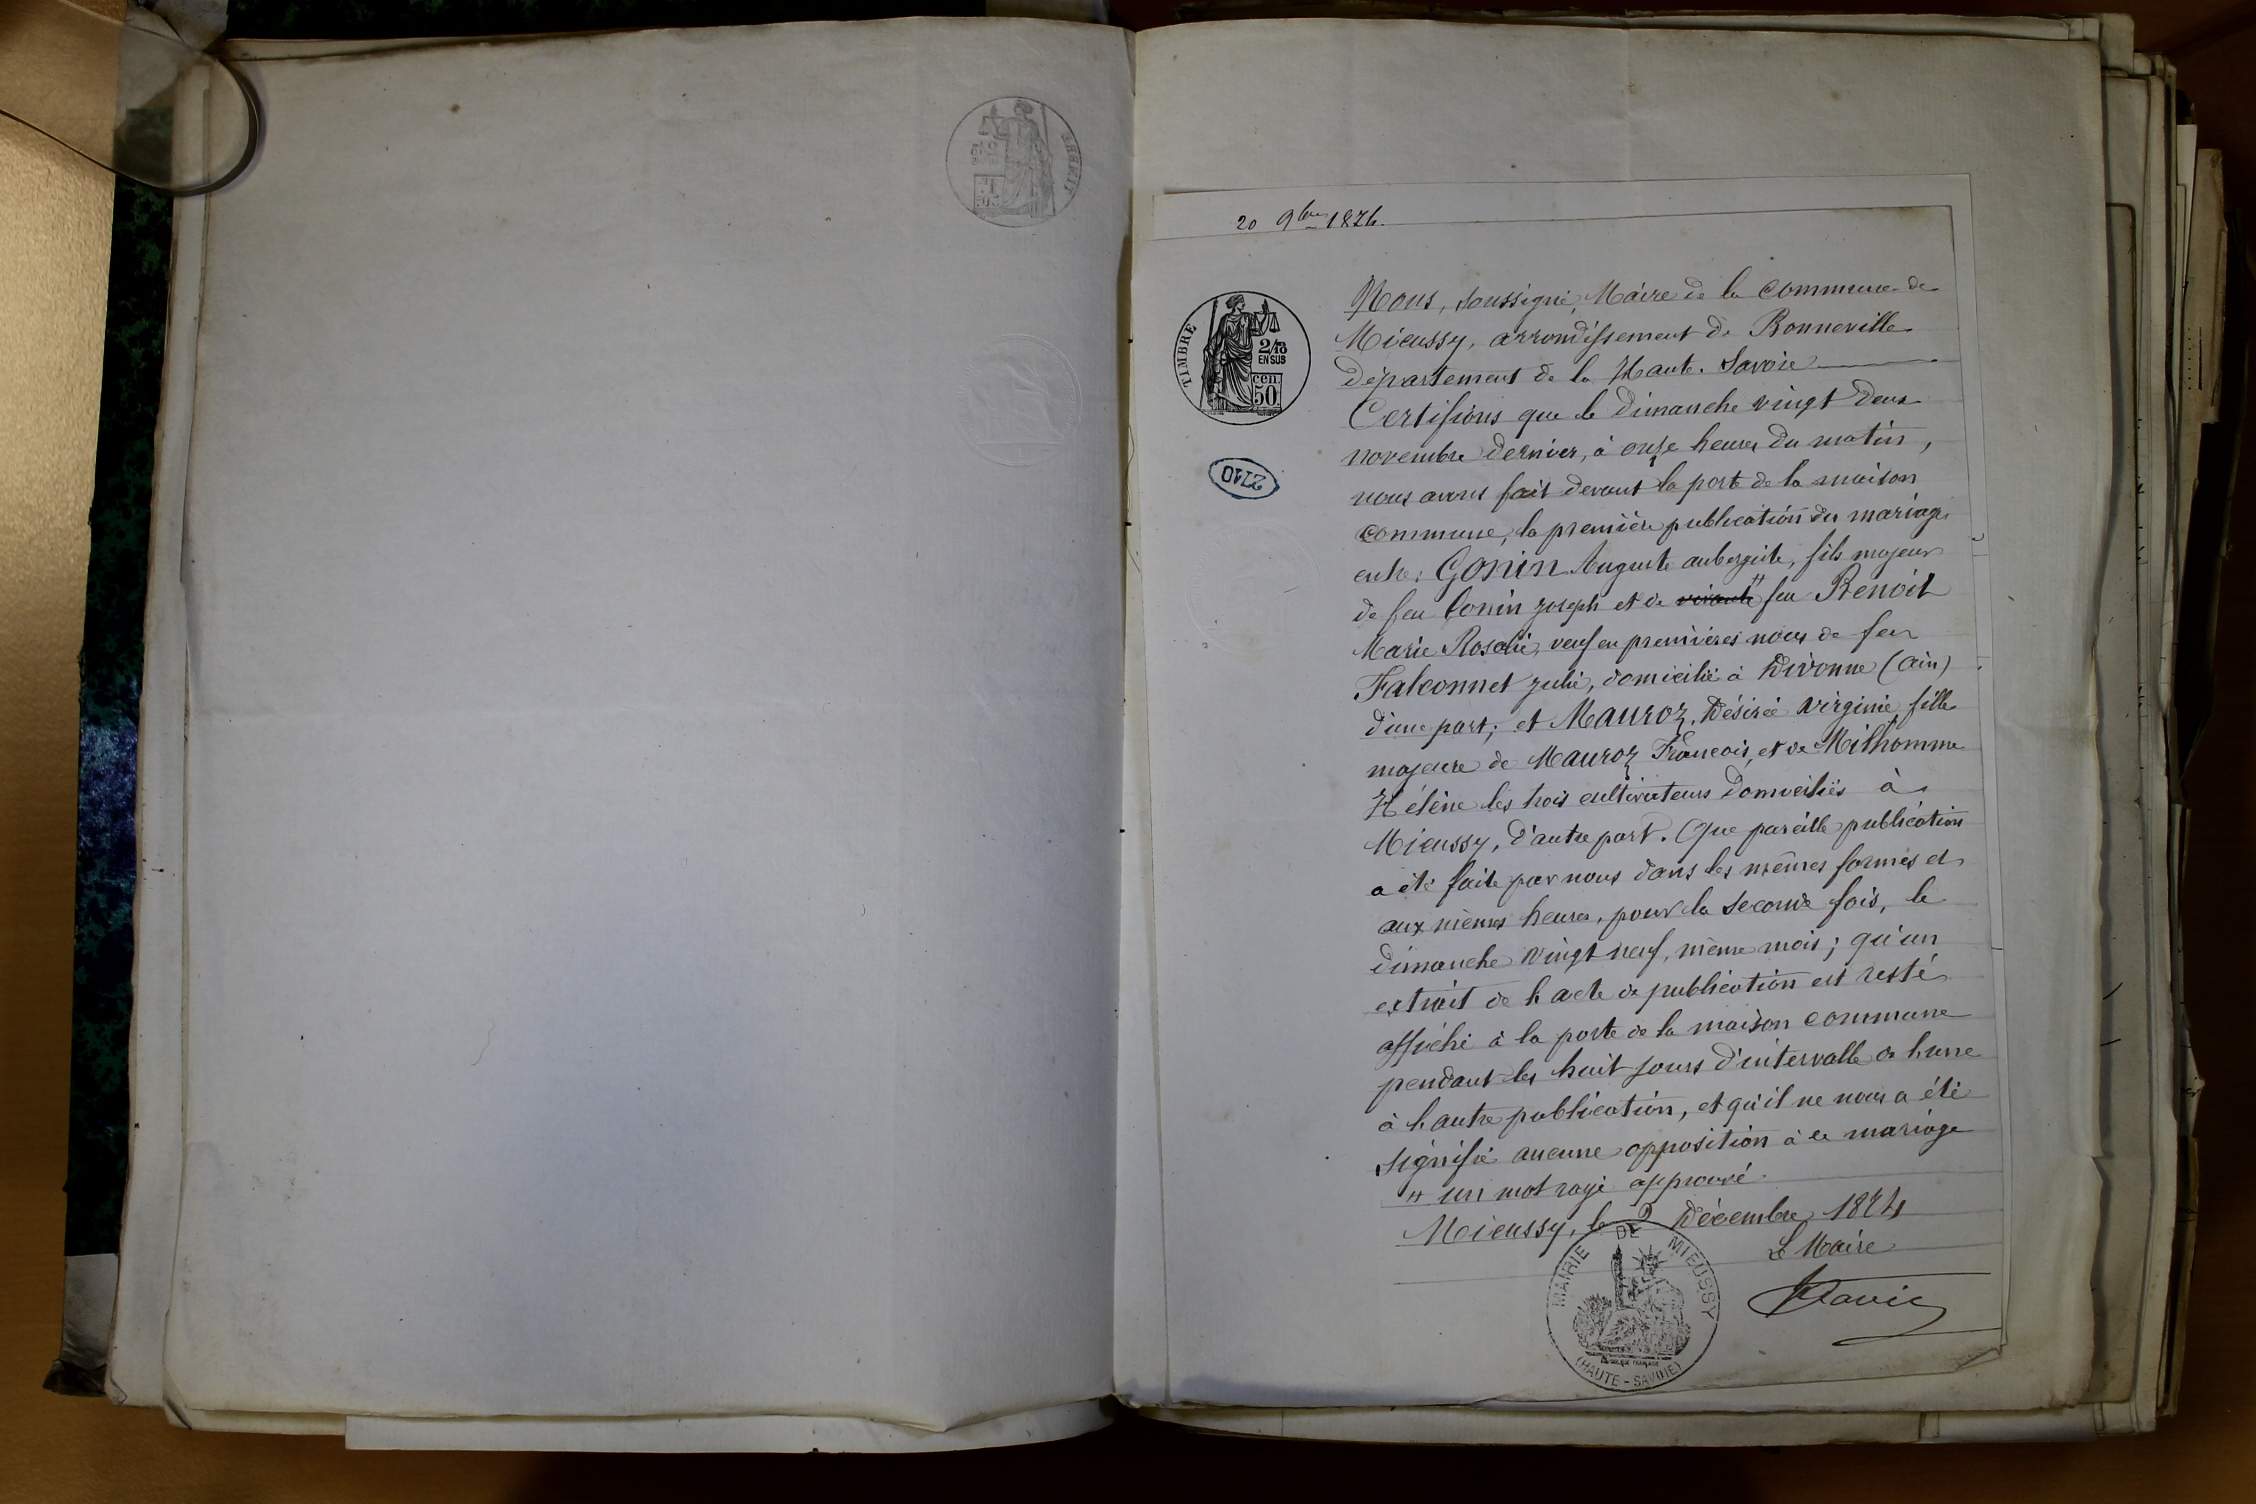 20 9bre 1874.
TIMBRE
2/10
EN SUS
cen.
50
Nous, soussigné, Maire de la commune de
Mieussy, arrondissement de Bonneville
département de la Haute-Savoie
Certifions que le dimanche vingt deux
novembre dernier, à onze heures du matin,
nous avons fait devant la porte de la maison
commune, la première publication du mariage
entre: Gonin Auguste aubergiste, fils majeur
de feu Gonin Joseph et de vivante " feu Benoit
Marie Rosalie, veuf en premières noces de feu
Falconnet Julie, domicilié à Divonne (Ain)
d'une part; et Mauroz, Désirée Virginie fille
majeure de Mauroz François, et de Milhomme
Hélène les trois cultivateurs domiciliés à
Mieussy, d'autre part. Que pareille publication
a été faite par nous dans les mêmes formes et
aux mêmes heures, pour la seconde fois, le
dimanche vingt neuf, même mois; qu'un
extrait de l'acte de publication est resté
affiché à la porte de la maison commune
pendant les huit jours d'intervalle de l'une
à l'autre publication, et qu'il ne nous a été
signifié aucune opposition à ce mariage
" un mot rayé approuvé.
Mieussy, le 2 Décembre 1874
Le Maire
MAIRIE DE MIEUSSY
(HAUTE-SAVOIE)